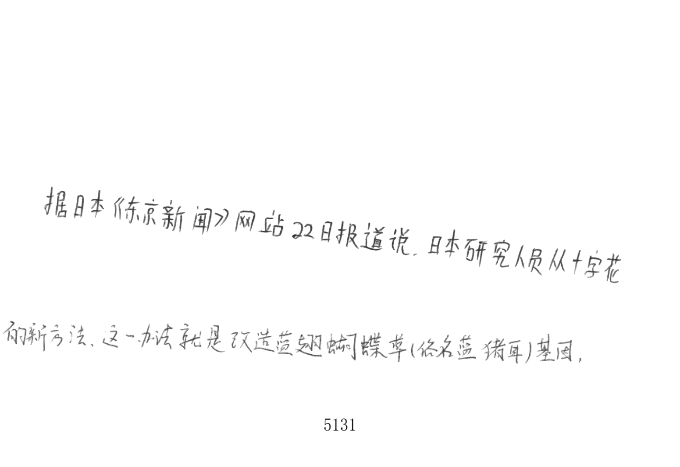 据日本《东京新闻》网站22日报道说,日本研究人员从十字花
的新方法,这一办法就是改造蓝翅蝴蝶草(俗名蓝猪耳)基因,
5131